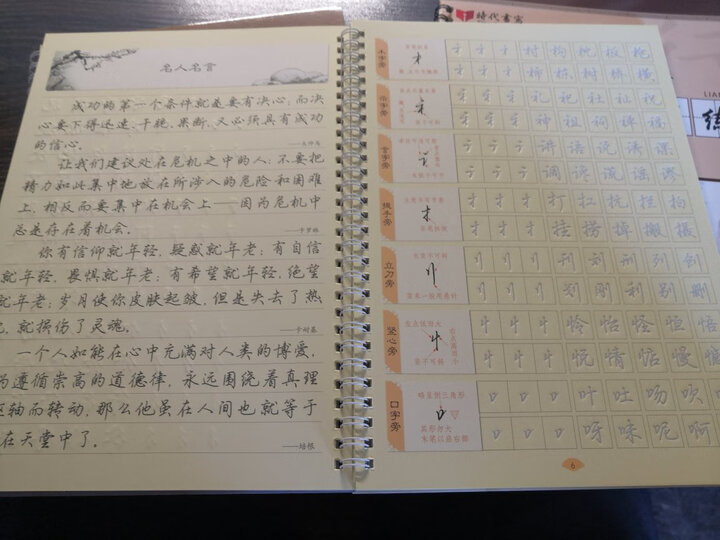 名人名言
成功的第一个条件就是要有决心；而决
心要下得迅速、干脆、果断、又必须具有成功
的信心。
——大仲马
让我们建议处在危机之中的人：不要把
精力如此集中地放在所涉入的危险和困难
上，相反而要集中在机会上——因为危机中
总是存在着机会。
——卡罗琳
你有信仰就年轻，疑惑就年老；有自信
就年轻，畏惧就年老；有希望就年轻，绝望
就年老；岁月使你皮肤起皱，但是失去了热
就损伤了灵魂。
——卡耐基
一个人如能在心中充满对人类的博爱，
为遵循崇高的道德律，永远围绕着真理
枢轴而转动，那么他虽在人间也就等于
在天堂中了。
——培根
木字旁
村 构 枕 板
柿 栋 树 桥 横
示字旁
礼 祀 社 祝
神 祖 祠
言字旁
讲 语 说 诱 课
调 谅 谎 谣 谬
提手旁
打 扛 抗 担 拍
挂 捞 撤 摄
立刀旁
刊 刘 刑 列 创
划 刚 利 别 删
竖心旁
左点低而大
右点高而小
竖不可斜
怜 怡 怪 恒
悦 情 惦 慢
口字旁
略呈倒三角形
其形勿大
末笔以启右部
叶 吐 吻 吹
呀 味 呢 啊
6
时代书写
LIAN
练